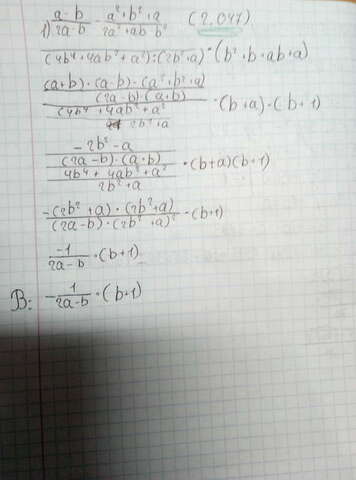 1) (a-b)/(2a-b) - (a²+b²+a)/(2a²+ab-b²) (2.047)
(4b⁴+4ab²+a²):(2b²+a) · (b²+b+ab+a)
((a+b)·(a-b)-(a²+b²+a))/((2a-b)·(a+b))
/ (4b⁴+4ab²+a²)/(2b²+a) · (b+a)·(b+1)
(-2b²-a)/((2a-b)·(a+b))
/ (4b⁴+4ab²+a²)/(2b²+a) · (b+a)(b+1)
(-(2b²+a)·(2b²+a))/((2a-b)·(2b²+a)²) · (b+1)
-1/(2a-b) · (b+1)
В: -1/(2a-b) · (b+1)